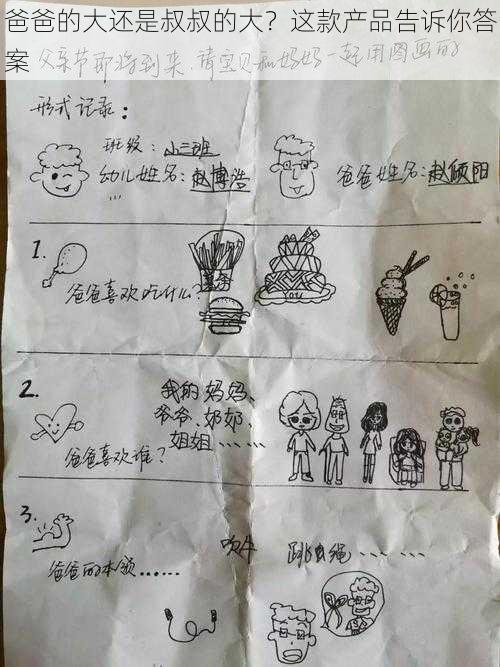 爸爸的大还是叔叔的大？这款产品告诉你答
案
父亲节即将到来,请宝贝和妈妈一起用图画的
形式记录：
班级：小三班
幼儿姓名：赵博浩
爸爸姓名：赵硕阳
1.
爸爸喜欢吃什么？
2.
我的妈妈、
爷爷、奶奶、
姐姐……
爸爸喜欢谁？
3.
吹牛
跳绳……
爸爸的本领……